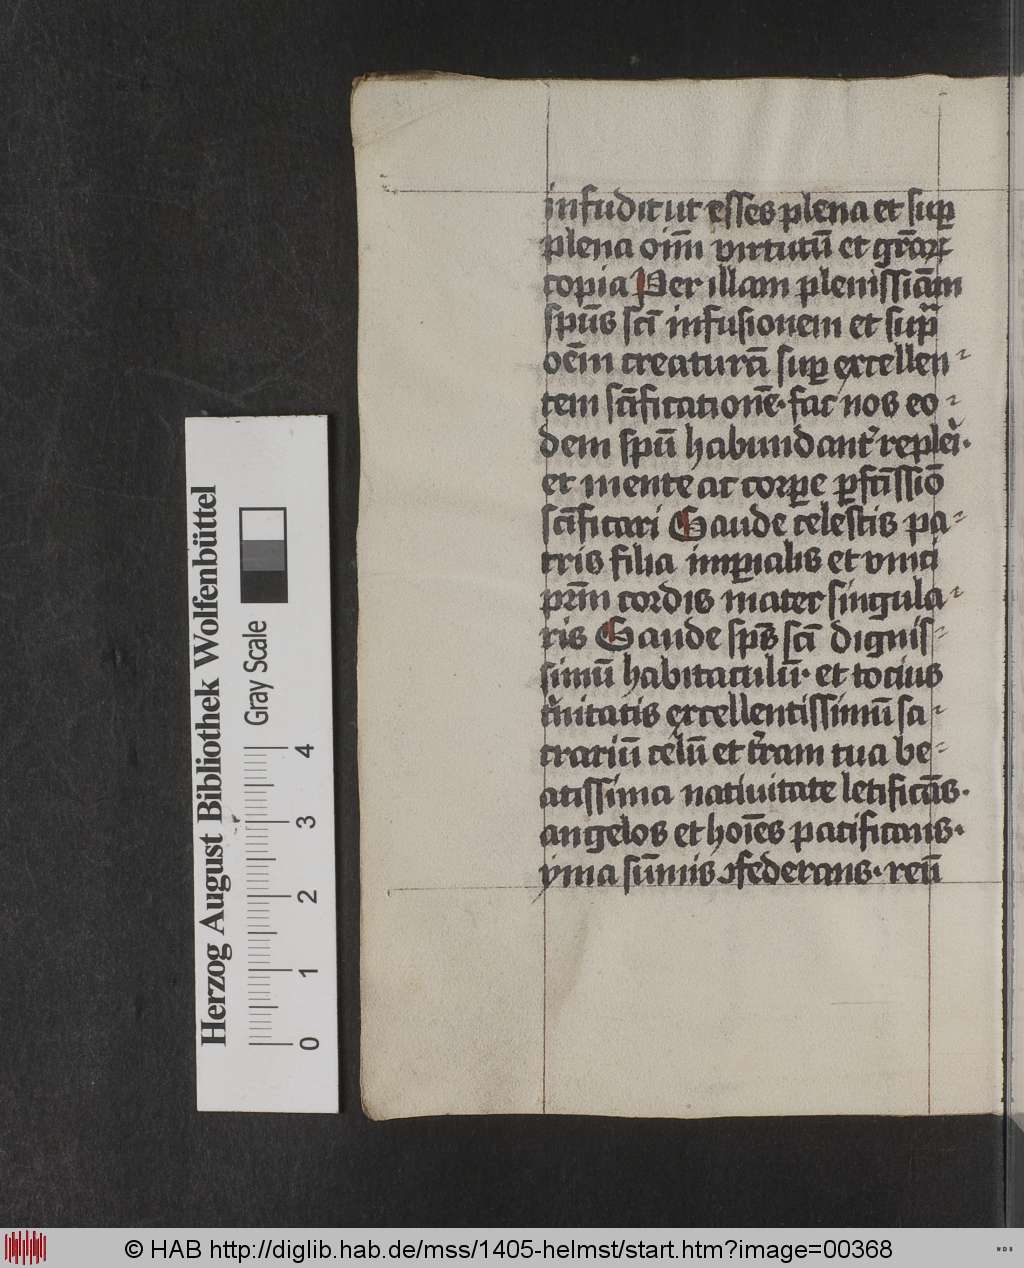 infudit ut esses plena et sup
plena oīm virtutū et grār
copia Per illam plenissiām
spūs scī infusionem et supra
oēm creaturā sup excellen
tem scīficationē· fac nos eo
dem spū habundant replei·
et mente ac corpe pfcīssiō
scīficari Gaude celestis pa
tris filia impialis et vnici
prīm cordis mater singula
ris Gaude spūs scī dignis
simū habitaculū· et tocius
tinitatis excellentissimū sa
crariū celū et tram tua be
atissima natiuitate letificās·
angelos et hoīes pacificans·
yma sūmis ɔfederans· reū
Herzog August Bibliothek Wolfenbüttel
Gray Scale
0 1 2 3 4
© HAB http://diglib.hab.de/mss/1405-helmst/start.htm?image=00368